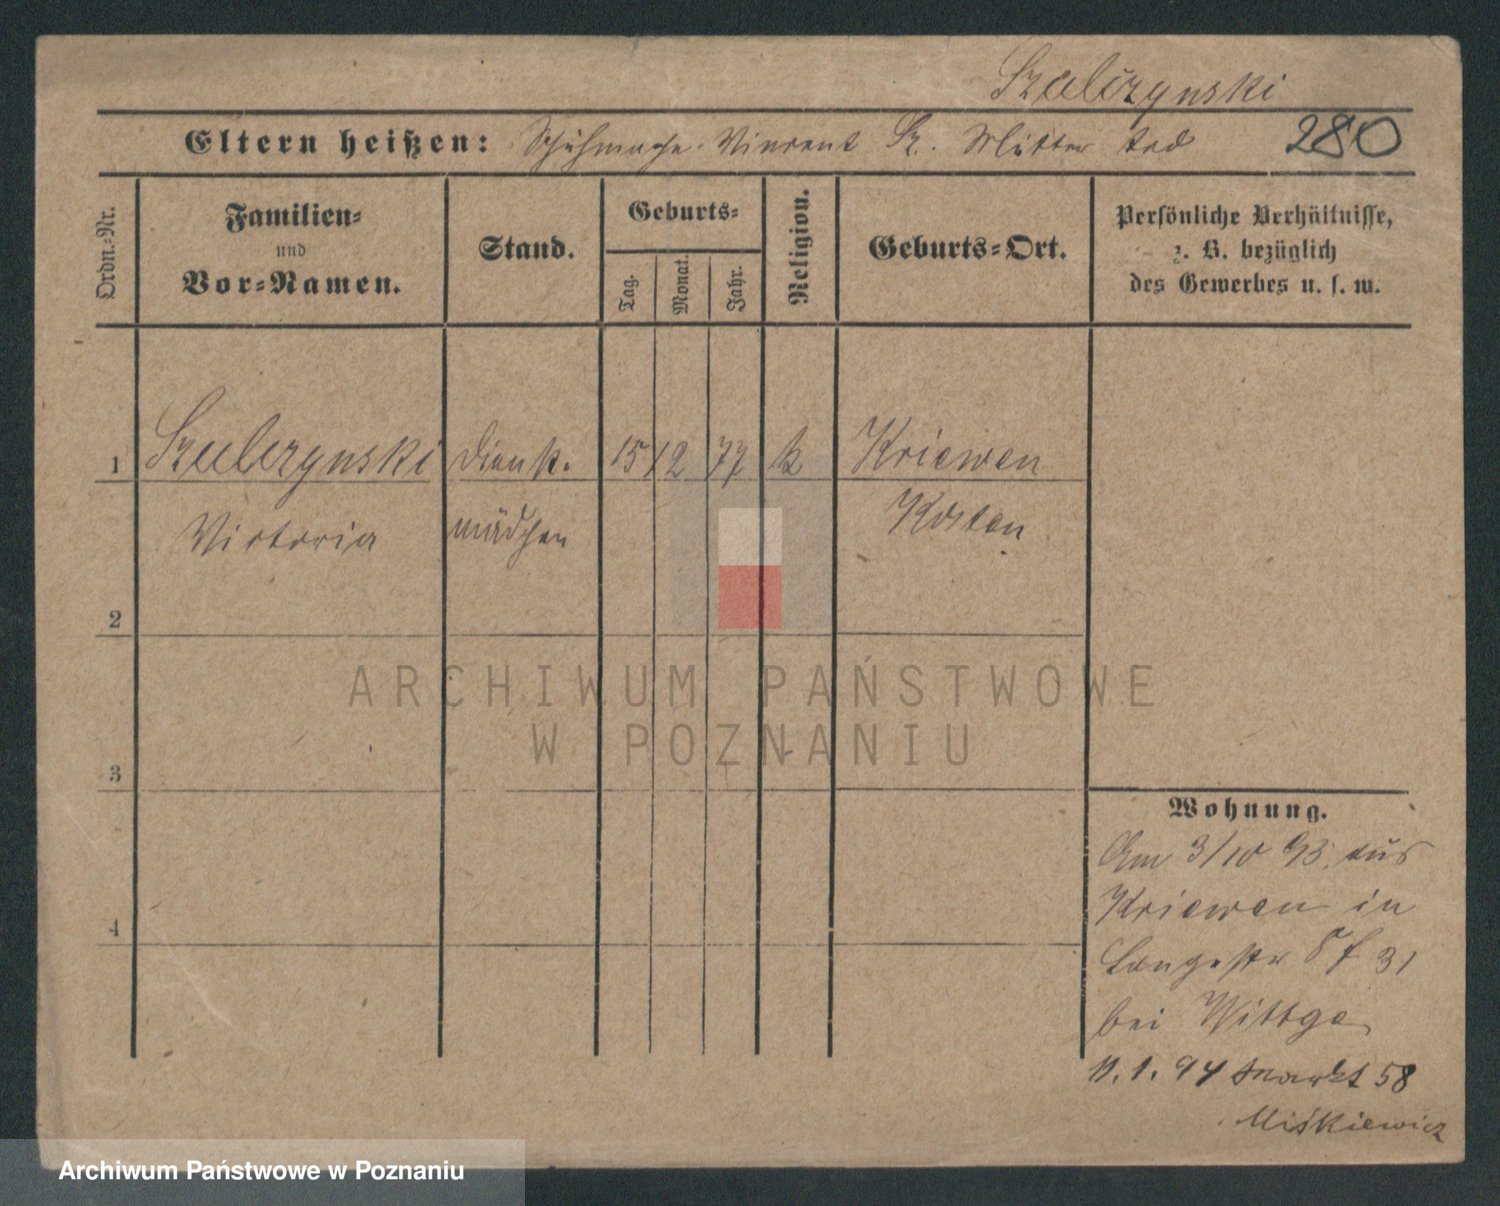 Szulczynski
Eltern heißen: Schuhmacher Vincent Sz. Mutter tod
280
Ordn.=Nr.
Familien=
und
Vor=Namen.
Stand.
Geburts=
Tag.
Monat.
Jahr.
Religion.
Geburts=Ort.
Persönliche Verhältnisse,
z. B. bezüglich
des Gewerbes u. s. w.
1 Szulczynski Dienst- 15 12 77 k Kriewen
Victoria mädchen Kosten
2
ARCHIWUM PAŃSTWOWE
W POZNANIU
3
4
Wohnung.
Am 3/10 93 aus
Kriewen in
Langestr 31
bei Wittge
11.1.94 Markt 58
Miśkiewicz
Archiwum Państwowe w Poznaniu